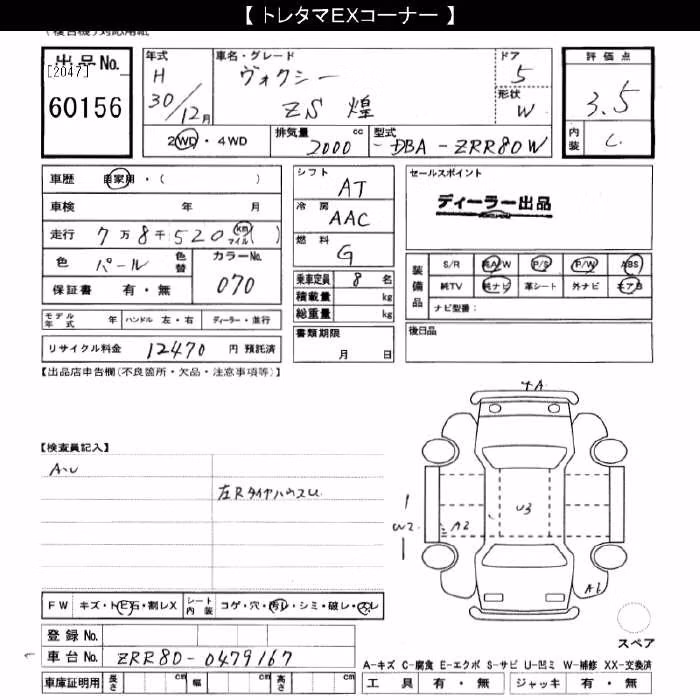 【 トレタマEXコーナー 】
出品No.
[2047]
60156
年式
H
30/12月
車名・グレード
ヴォクシー
ZS 煌
ドア
5
形状
W
評価点
3.5
内装
C
2WD・4WD
排気量 2000 cc
型式 DBA - ZRR80W
車歴 自家用・( )
車検 年 月
走行 7万8千520 km マイル ( )
色 パール 色替
カラーNo.
070
保証書 有・無
モデル年式 年 ハンドル 左・右 ディーラー・並行
リサイクル料金 12470 円 預託済
シフト
AT
冷房
AAC
燃料
G
乗車定員 8 名
積載量 kg
総重量 kg
書類期限
月 日
セールスポイント
ディーラー出品
装備品
S/R 純AW P/S P/W ABS
純TV 純ナビ 革シート 外ナビ エアB
ナビ型番:
後日品
【出品店申告欄(不良箇所・欠品・注意事項等)】
【検査員記入】
A・U
左Rタイヤハウスu
A
W2
A2
U3
A1
スペア
FW キズ・トビ石・割レX シート内装 コゲ・穴・汚レ・シミ・破レ・スレ
登録No.
車台No. ZRR80-0479167
車庫証明用 長さ cm 幅 cm 高さ cm
A-キズ C-腐食 E-エクボ S-サビ U-凹ミ W-補修 XX-交換済
工具 有・無 ジャッキ 有・無